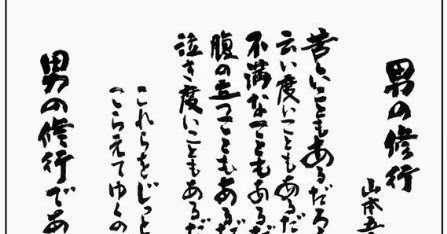 男の修行
山本五
苦しいこともあるだろう
云い度いこともあるだ
不満なこともあるだ
腹の立つこともあるだ
泣き度いこともあるだ
これらをじっと
こらえてゆくの
男の修行であ